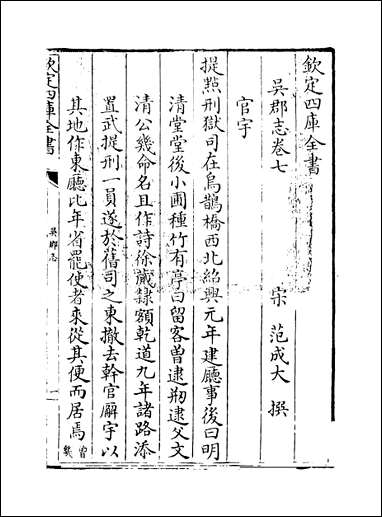 欽定四庫全書
吳郡志卷七
宋 范成大 撰
官宇
提㸃刑獄司在烏鵲橋西北紹興元年建廳事後曰明
清堂堂後小圃種竹有亭曰留客曾逮剏逮父文
清公幾命名且作詩徐蕆隸額乾道九年諸路添
置武提刑一員遂於舊司之東撤去幹官廨宇以
其地作東廳比年省罷使者來從其便而居焉 曾幾
欽定四庫全書
吳郡志
一